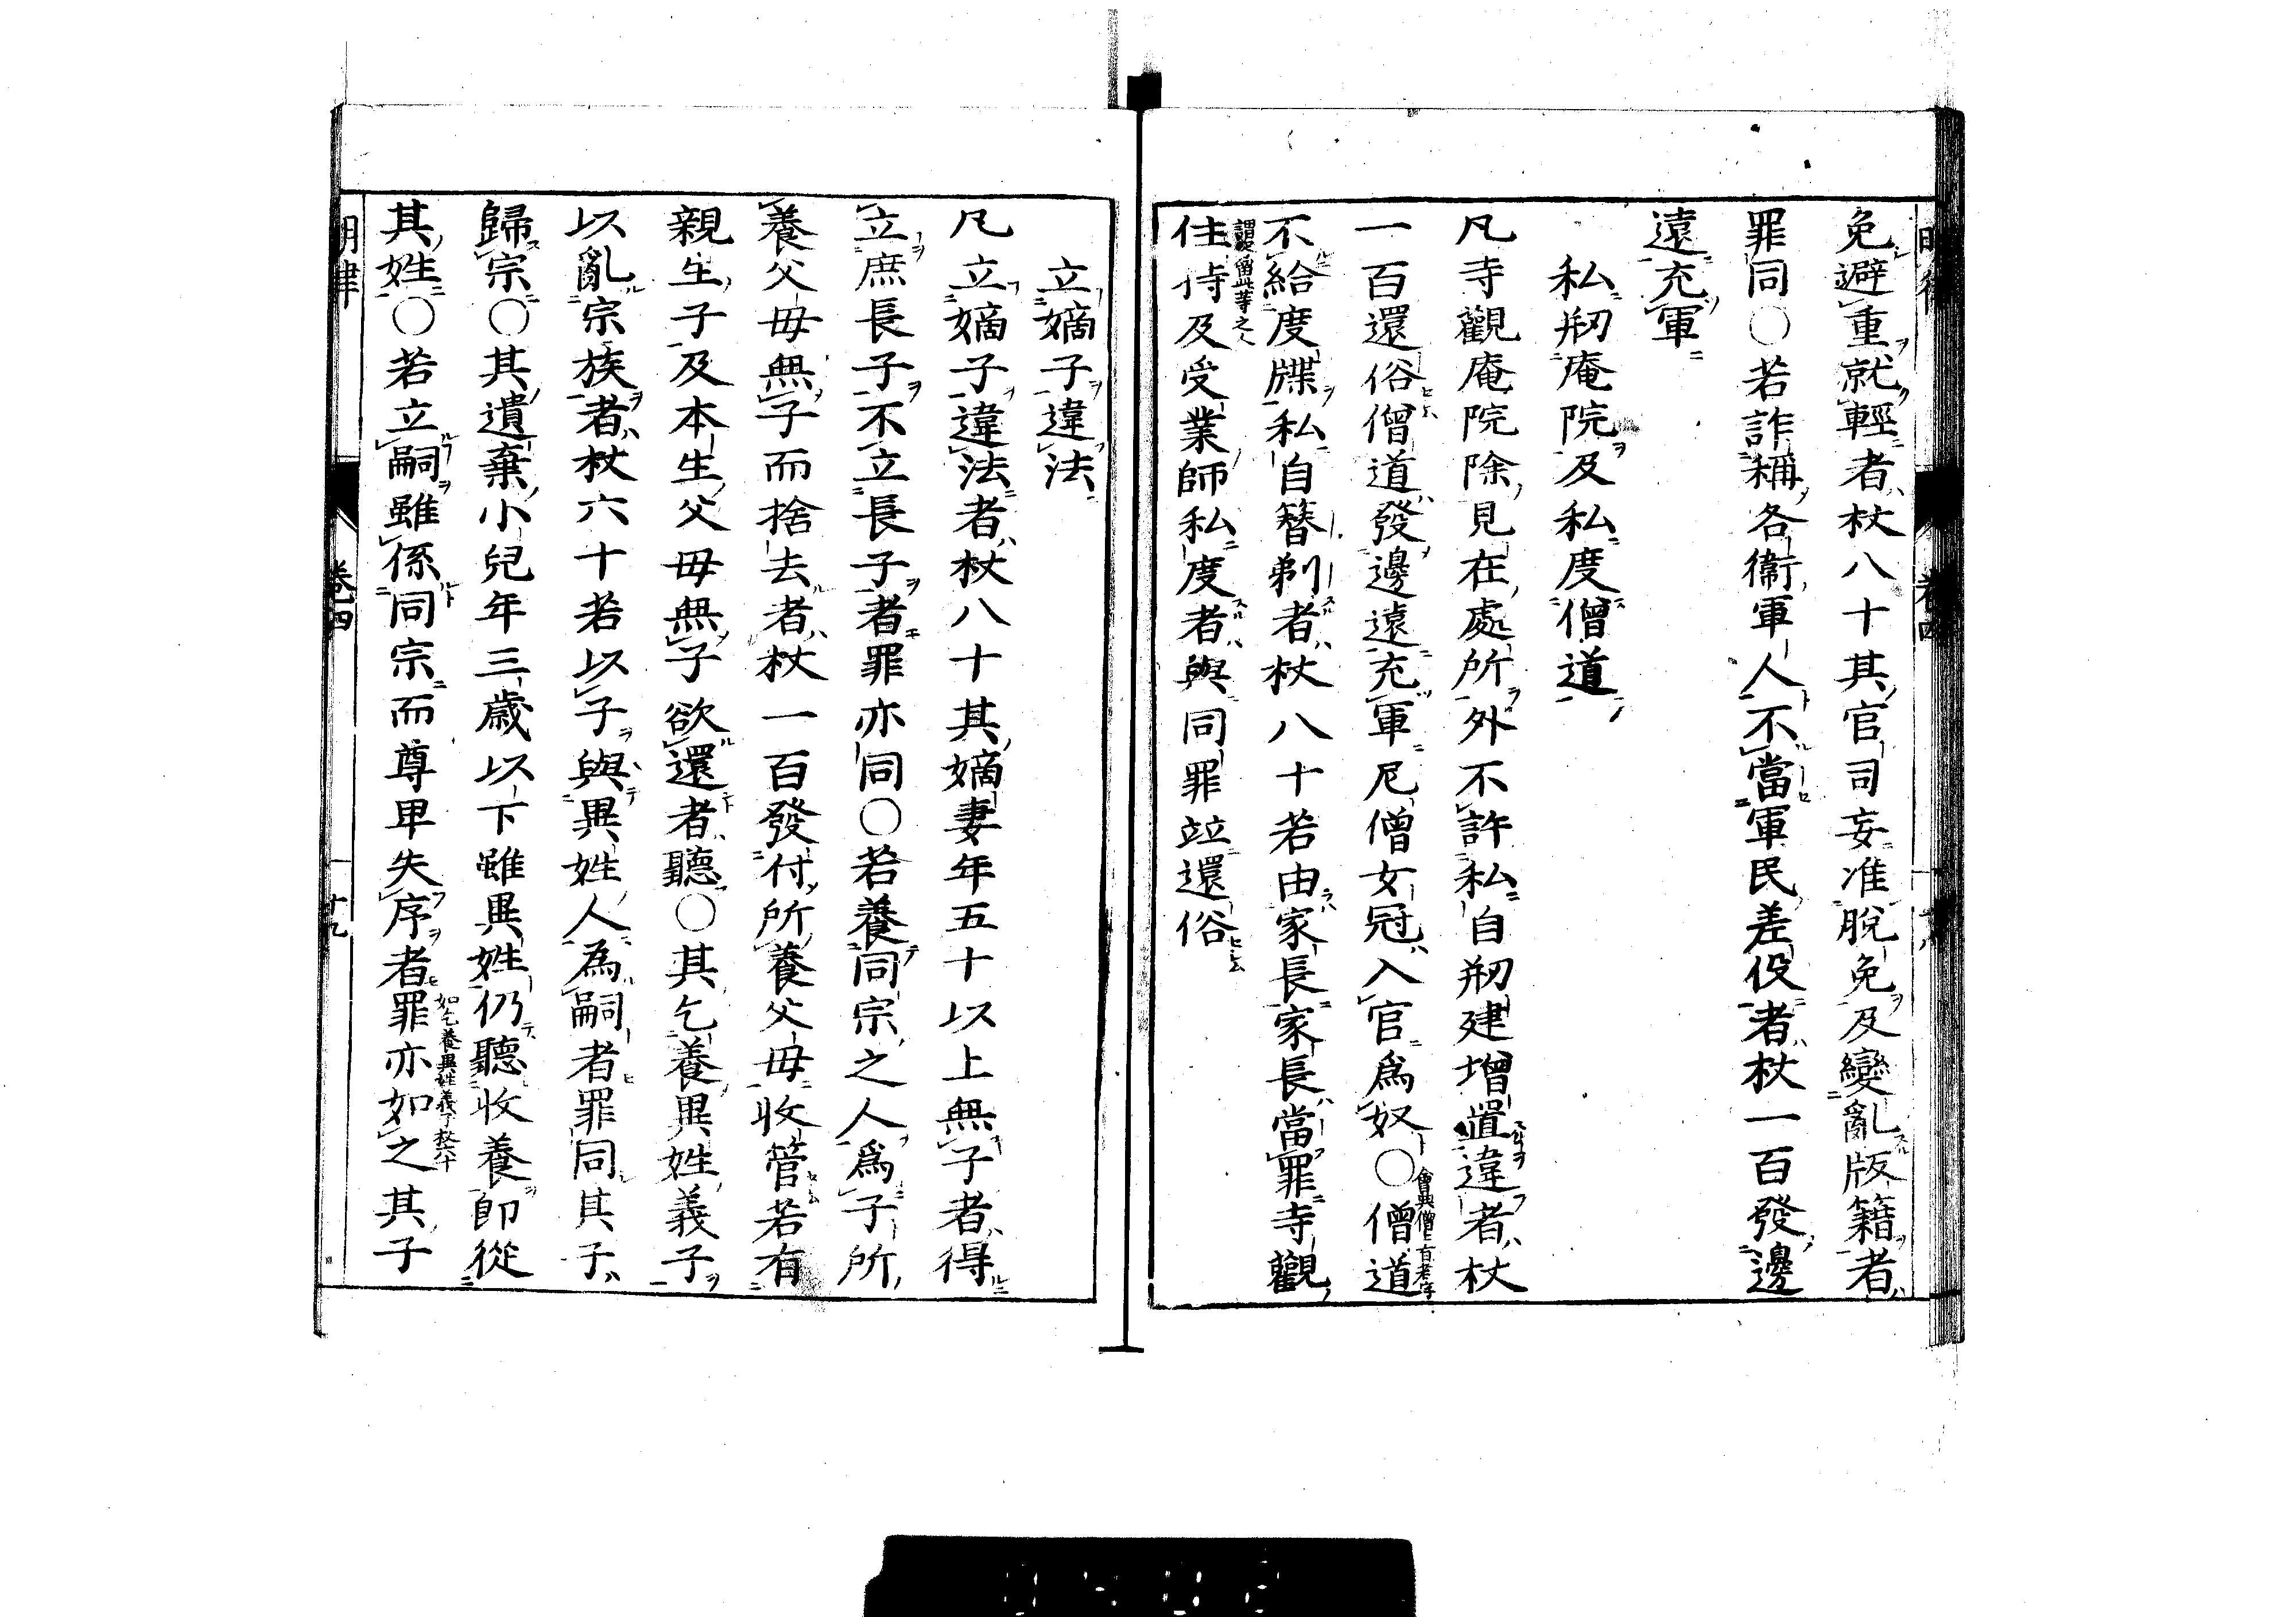 免避重就輕者杖八十其官司妄准脫免及變亂版籍者
罪同〇若詐稱各衞軍人不當軍民差役者杖一百發邊
遠充軍
私剏庵院及私度僧道
凡寺觀庵院除見在處所外不許私自剏建增置違者杖
一百還俗僧道發邊遠充軍尼僧女冠入官爲奴〇僧道
不給度牒私自簪剃者杖八十若由家長家長當罪寺觀
住持及受業師私度者與同罪竝還俗
明律 卷四 十九
立嫡子違法
凡立嫡子違法者杖八十其嫡妻年五十以上無子者得
立庶長子不立長子者罪亦同〇若養同宗之人爲子所
養父母無子而捨去者杖一百發付所養父母收管若有
親生子及本生父母無子欲還者聽〇其乞養異姓義子
以亂宗族者杖六十若以子與異姓人為嗣者罪同其子
歸宗〇其遺棄小兒年三歲以下雖異姓仍聽收養卽從
如乞養異姓義子杖六十
其姓〇若立嗣雖係同宗而尊卑失序者罪亦如之其子